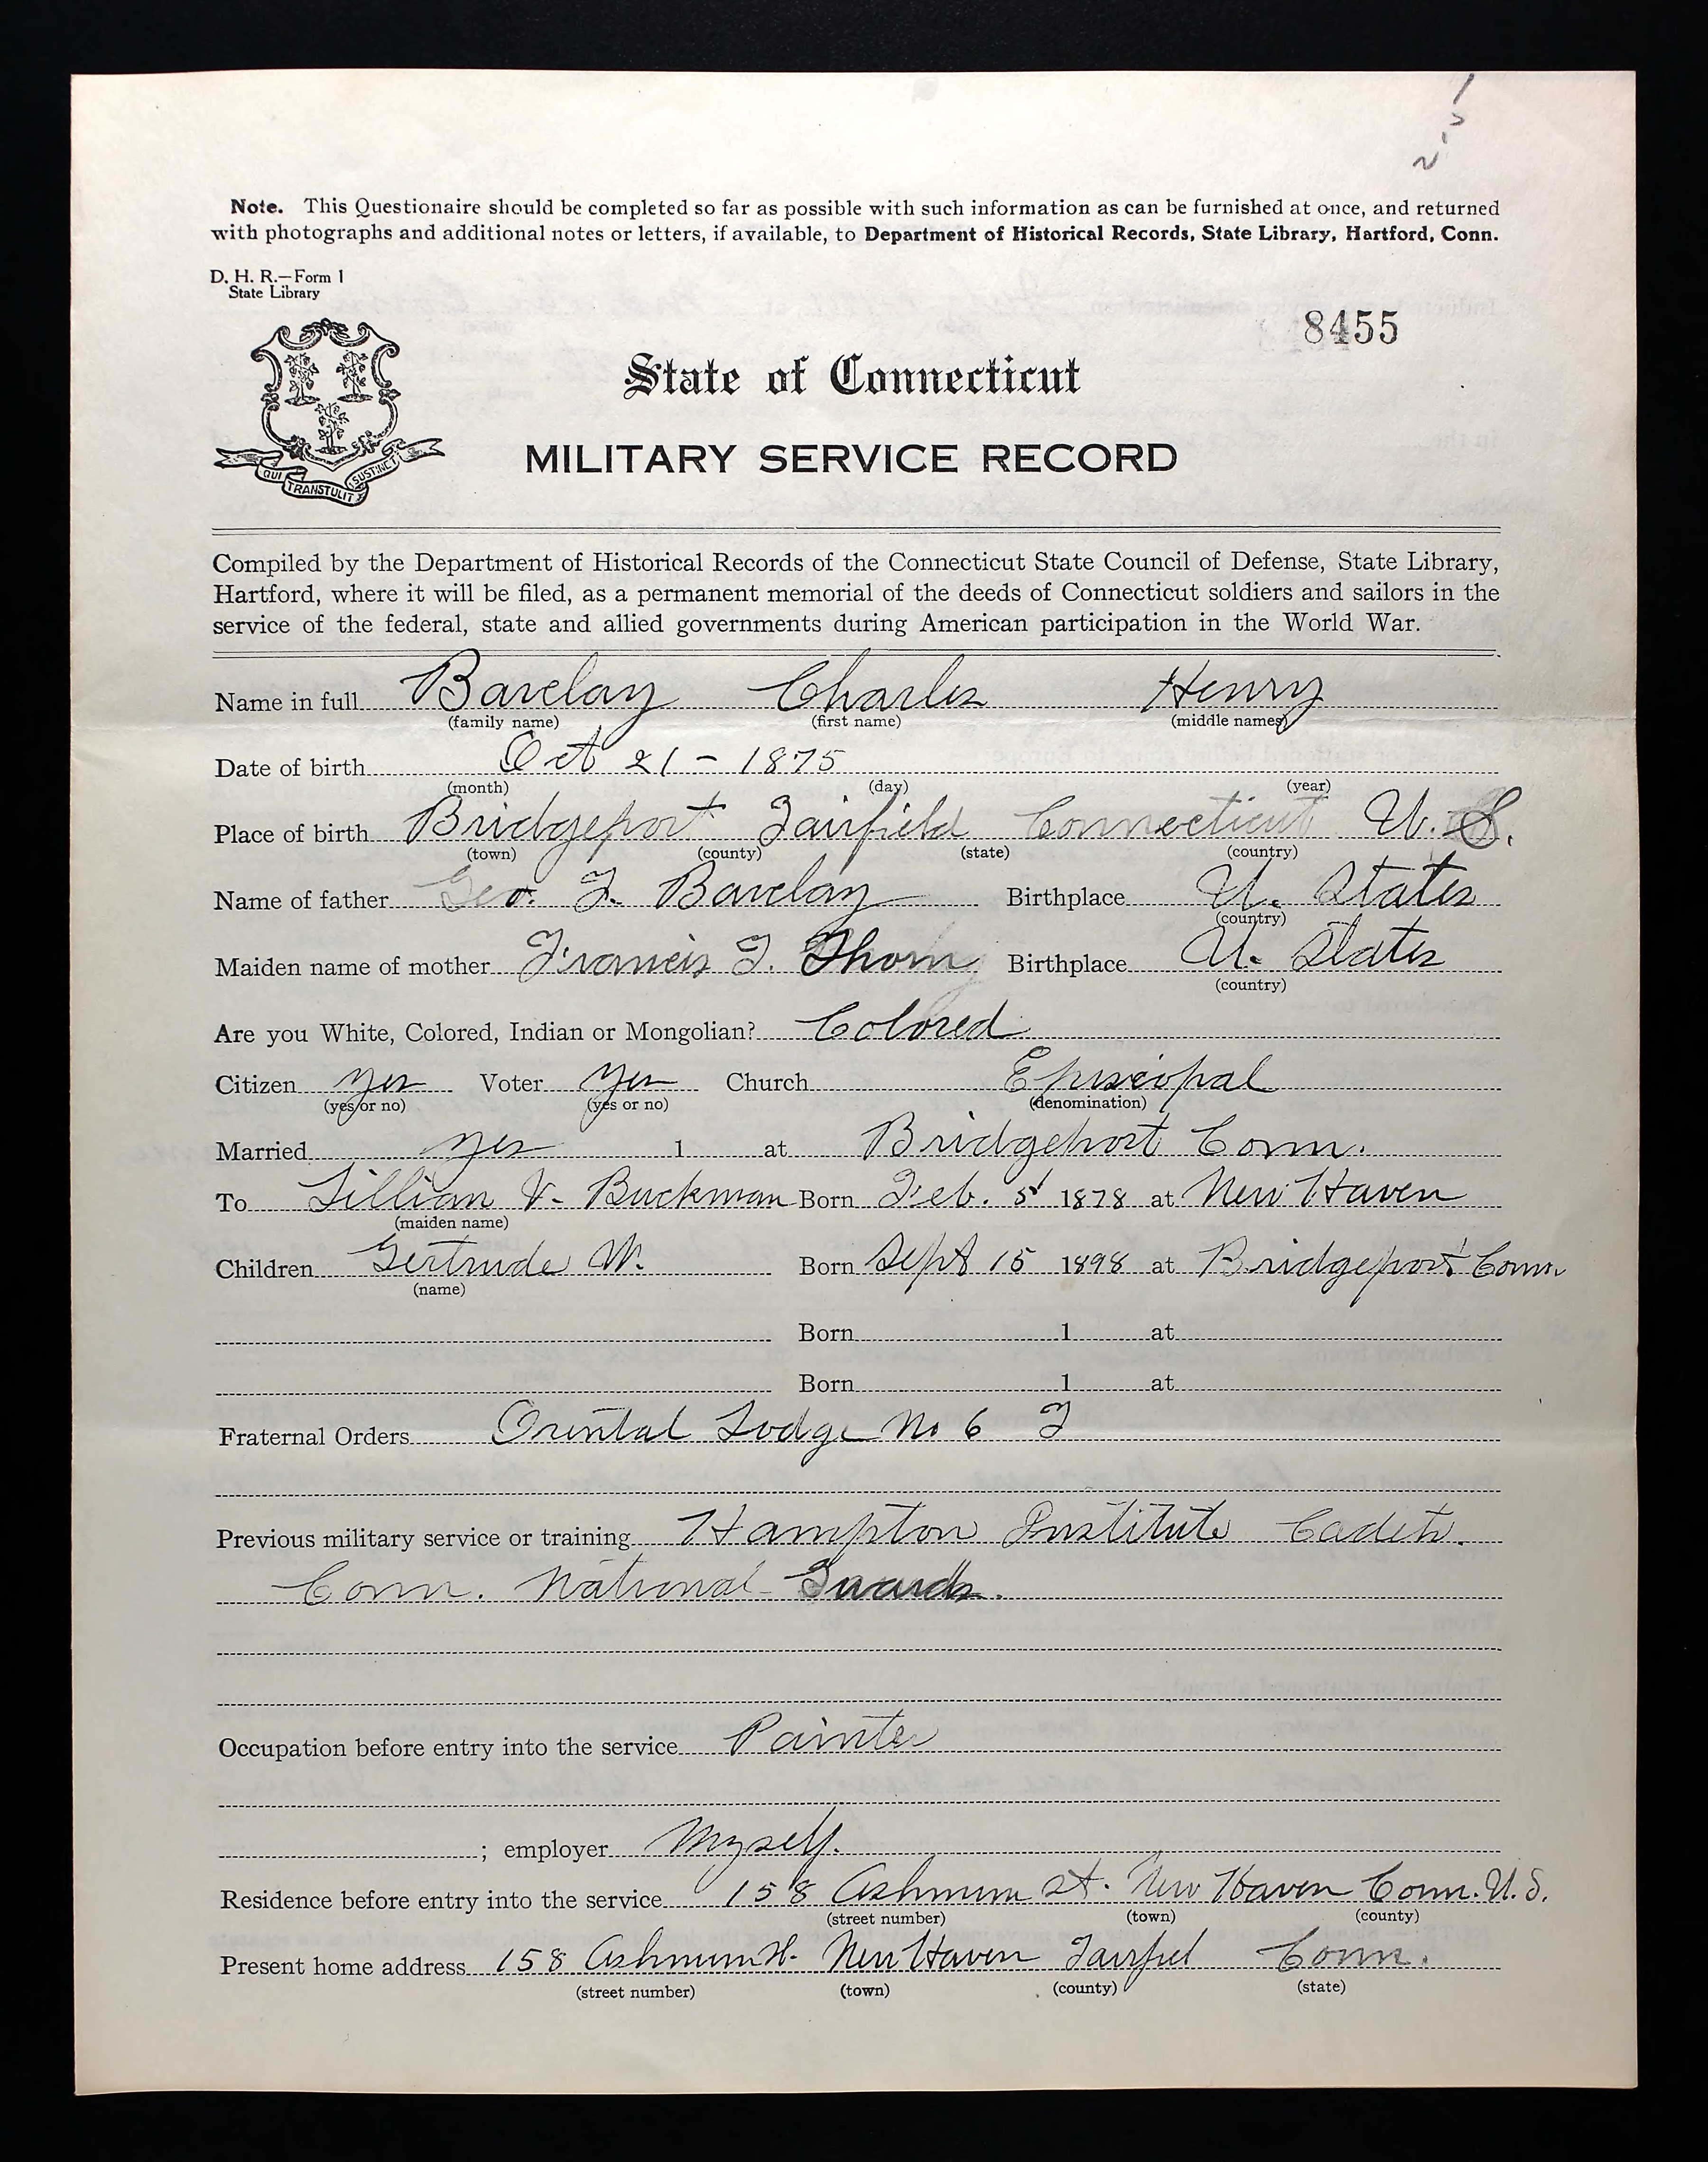 Note. This Questionaire should be completed so far as possible with such information as can be furnished at once, and returned
with photographs and additional notes or letters, if available, to Department of Historical Records, State Library, Hartford, Conn.
D. H. R.—Form 1
State Library
8455
State of Connecticut
QUI TRANSTULIT SUSTINET
MILITARY SERVICE RECORD
Compiled by the Department of Historical Records of the Connecticut State Council of Defense, State Library,
Hartford, where it will be filed, as a permanent memorial of the deeds of Connecticut soldiers and sailors in the
service of the federal, state and allied governments during American participation in the World War.
Name in full Barclay Charles Henry
(family name) (first name) (middle names)
Date of birth Oct 21 - 1875
(month) (day) (year)
Place of birth Bridgeport Fairfield Connecticut U. S.
(town) (county) (state) (country)
Name of father Geo. F. Barclay Birthplace U. States
(country)
Maiden name of mother Francis F. Thom Birthplace U. States
(country)
Are you White, Colored, Indian or Mongolian? Colored
Citizen yes Voter yes Church Episcopal
(yes or no) (yes or no) (denomination)
Married yes 1 at Bridgeport Conn.
To Lillian V. Buckman Born Feb. 5 1878 at New Haven
(maiden name)
Children Gertrude W. Born Sept 15 1898 at Bridgeport Conn
(name)
Born 1 at
Born 1 at
Fraternal Orders Oriental Lodge No 6 F
Previous military service or training Hampton Institute Cadets.
Conn. National Guards.
Occupation before entry into the service Painter
; employer Myself.
Residence before entry into the service 158 Ashmum St. New Haven Conn. U. S.
(street number) (town) (county)
Present home address 158 Ashmum St. New Haven Fairfiel Conn.
(street number) (town) (county) (state)